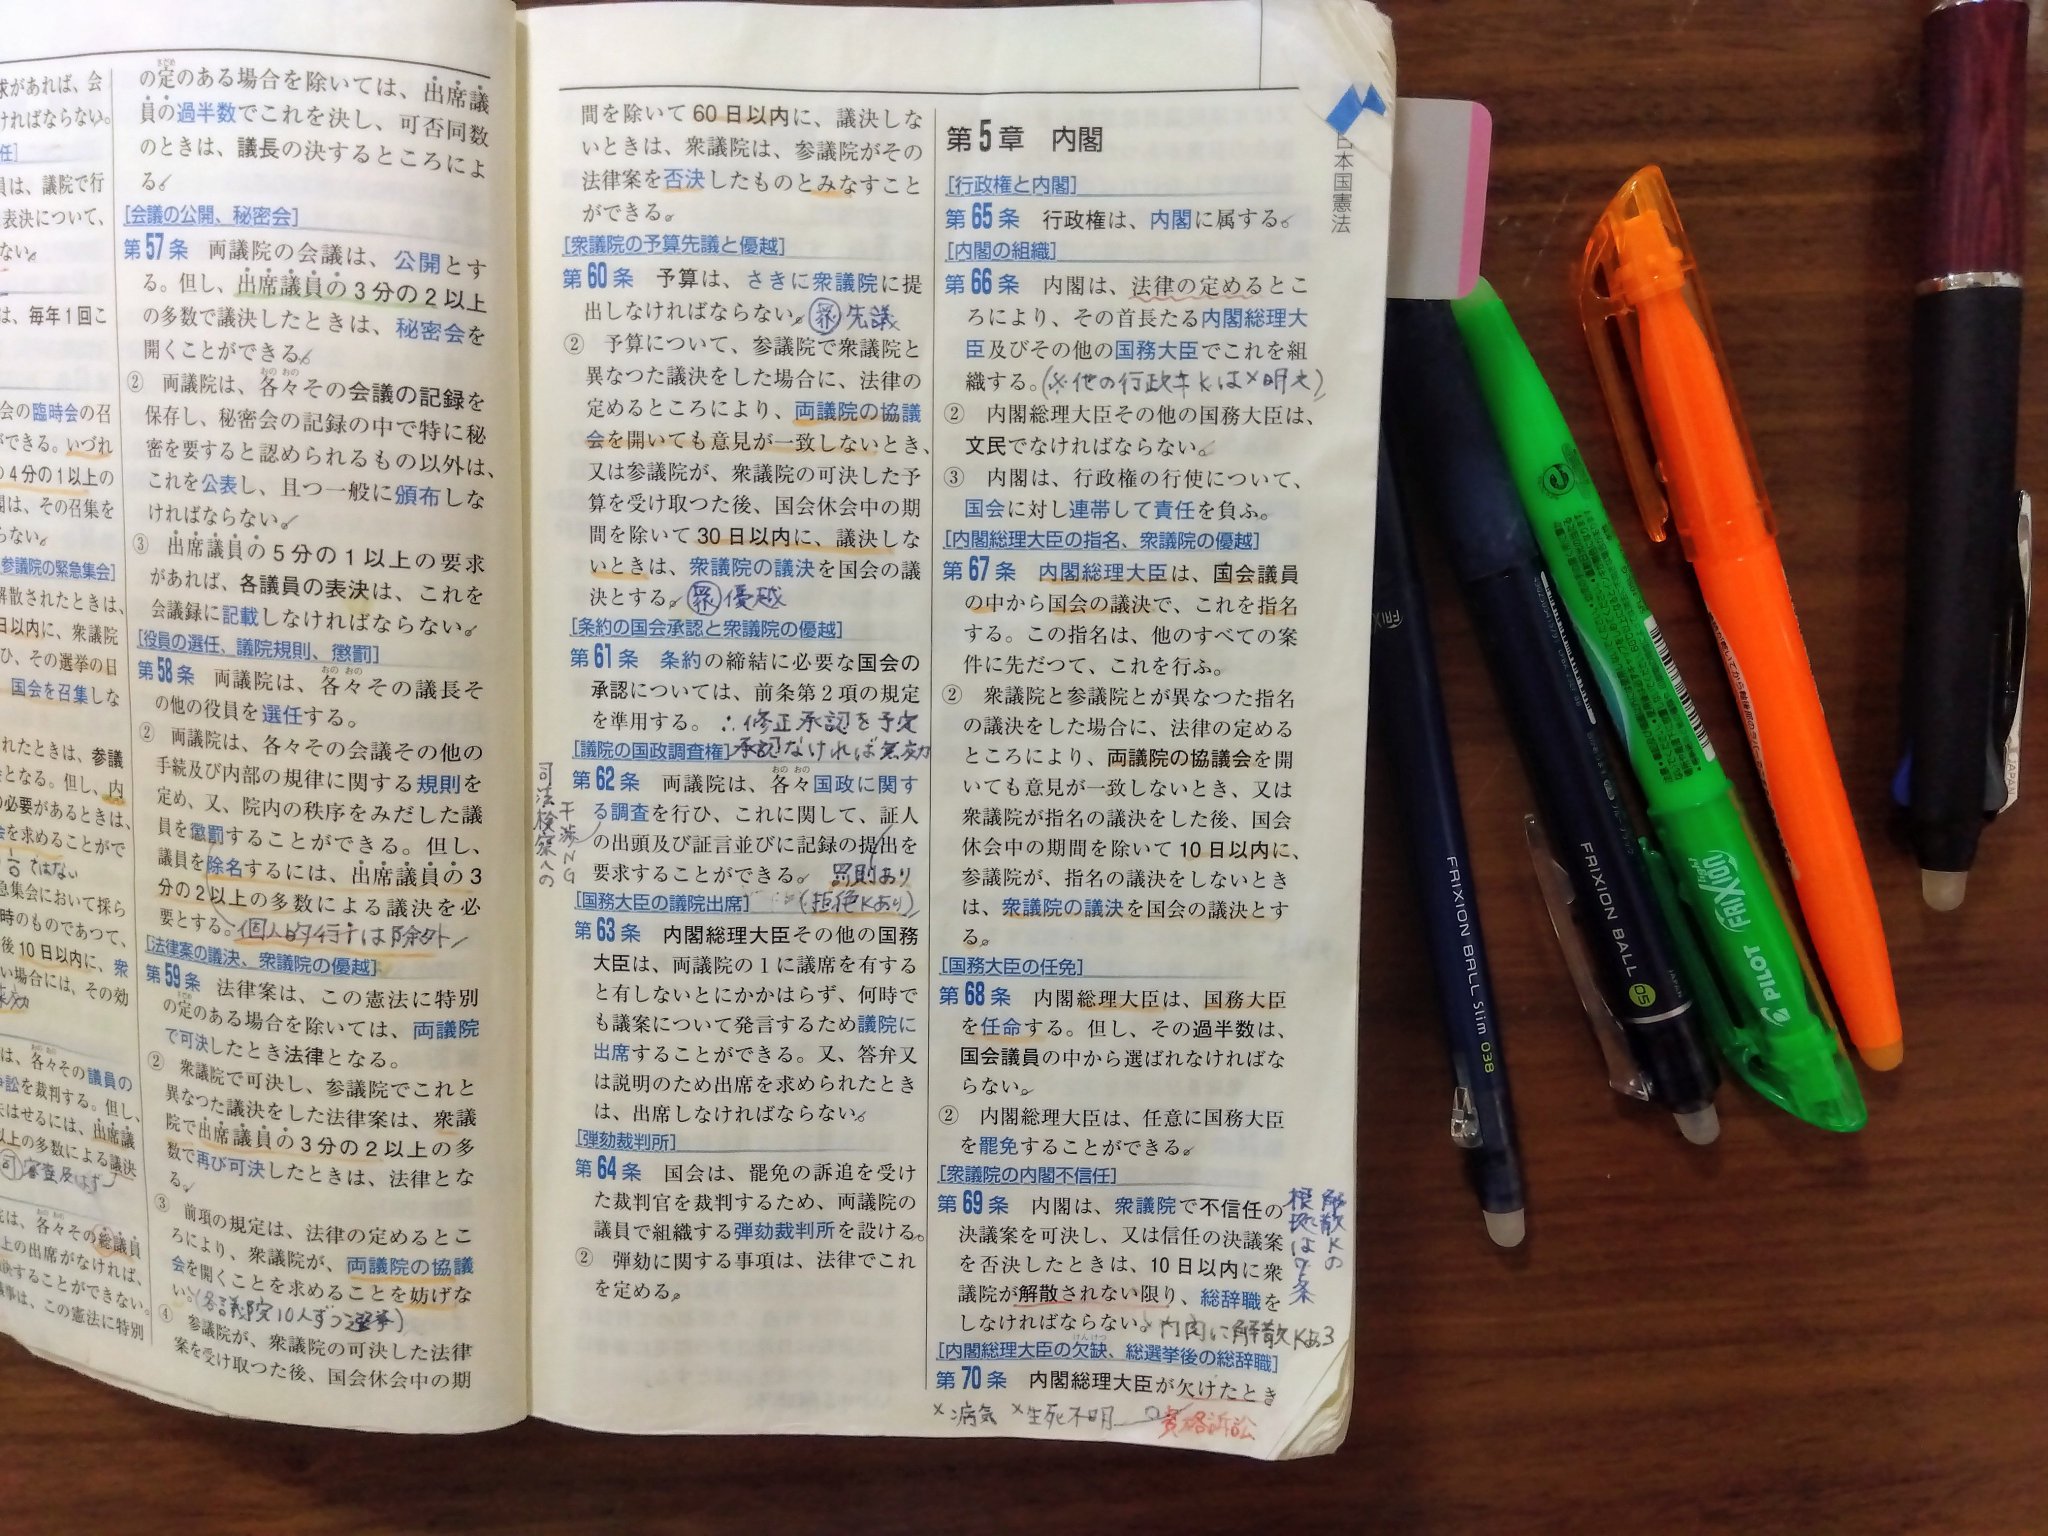 求があれば、会
ければならない。
任]
員は、議院で行
表決について、
ない。
は、毎年1回こ
会の臨時会の召
ができる。いづれ
の4分の1以上の
閣は、その召集を
らない。
参議院の緊急集会]
解散されたときは、
日以内に、衆議院
ひ、その選挙の日
国会を召集しな
れたときは、参議
となる。但し、内
必要があるときは、
会を求めることがで
急集会において採ら
時のものであつて、
後10日以内に、衆
い場合には、その効
は、各々その議員の
争訟を裁判する。但し、
失はせるには、出席議
以上の多数による議決
は、各々その総議員
上の出席がなければ、
決することができない。
議事は、この憲法に特別
の定のある場合を除いては、出席議
員の過半数でこれを決し、可否同数
のときは、議長の決するところによ
る。
[会議の公開、秘密会]
第57条 両議院の会議は、公開とす
る。但し、出席議員の3分の2以上
の多数で議決したときは、秘密会を
開くことができる。
② 両議院は、各々その会議の記録を
保存し、秘密会の記録の中で特に秘
密を要すると認められるもの以外は、
これを公表し、且つ一般に頒布しな
ければならない。
③ 出席議員の5分の1以上の要求
があれば、各議員の表決は、これを
会議録に記載しなければならない。
[役員の選任、議院規則、懲罰]
第58条 両議院は、各々その議長そ
の他の役員を選任する。
② 両議院は、各々その会議その他の
手続及び内部の規律に関する規則を
定め、又、院内の秩序をみだした議
員を懲罰することができる。但し、
議員を除名するには、出席議員の3
分の2以上の多数による議決を必
要とする。個人的行為は除外
[法律案の議決、衆議院の優越]
第59条 法律案は、この憲法に特別
の定のある場合を除いては、両議院
で可決したとき法律となる。
② 衆議院で可決し、参議院でこれと
異なつた議決をした法律案は、衆議
院で出席議員の3分の2以上の多
数で再び可決したときは、法律とな
る。
③ 前項の規定は、法律の定めるとこ
ろにより、衆議院が、両議院の協議
会を開くことを求めることを妨げな
い。(各議院10人ずつ選挙)
④ 参議院が、衆議院の可決した法律
案を受け取つた後、国会休会中の期
間を除いて60日以内に、議決しな
いときは、衆議院は、参議院がその
法律案を否決したものとみなすこと
ができる。
[衆議院の予算先議と優越]
第60条 予算は、さきに衆議院に提
出しなければならない。衆先議
② 予算について、参議院で衆議院と
異なつた議決をした場合に、法律の
定めるところにより、両議院の協議
会を開いても意見が一致しないとき、
又は参議院が、衆議院の可決した予
算を受け取つた後、国会休会中の期
間を除いて30日以内に、議決しな
いときは、衆議院の議決を国会の議
決とする。衆優越
[条約の国会承認と衆議院の優越]
第61条 条約の締結に必要な国会の
承認については、前条第2項の規定
を準用する。∴修正承認を予定
[議院の国政調査権]承認なければ無効
第62条 両議院は、各々国政に関す
る調査を行ひ、これに関して、証人
の出頭及び証言並びに記録の提出を
要求することができる。罰則あり
[国務大臣の議院出席](拒絶Kあり)
司法検察への
干渉NG
第63条 内閣総理大臣その他の国務
大臣は、両議院の1に議席を有する
と有しないとにかかはらず、何時で
も議案について発言するため議院に
出席することができる。又、答弁又
は説明のため出席を求められたとき
は、出席しなければならない。
[弾劾裁判所]
第64条 国会は、罷免の訴追を受け
た裁判官を裁判するため、両議院の
議員で組織する弾劾裁判所を設ける。
② 弾劾に関する事項は、法律でこれ
を定める。
第5章 内閣
[行政権と内閣]
第65条 行政権は、内閣に属する。
[内閣の組織]
第66条 内閣は、法律の定めるとこ
ろにより、その首長たる内閣総理大
臣及びその他の国務大臣でこれを組
織する。(※他の行政キKは×明文)
② 内閣総理大臣その他の国務大臣は、
文民でなければならない。
③ 内閣は、行政権の行使について、
国会に対し連帯して責任を負ふ。
[内閣総理大臣の指名、衆議院の優越]
第67条 内閣総理大臣は、国会議員
の中から国会の議決で、これを指名
する。この指名は、他のすべての案
件に先だつて、これを行ふ。
② 衆議院と参議院とが異なつた指名
の議決をした場合に、法律の定める
ところにより、両議院の協議会を開
いても意見が一致しないとき、又は
衆議院が指名の議決をした後、国会
休会中の期間を除いて10日以内に、
参議院が、指名の議決をしないとき
は、衆議院の議決を国会の議決とす
る。
[国務大臣の任免]
第68条 内閣総理大臣は、国務大臣
を任命する。但し、その過半数は、
国会議員の中から選ばれなければな
らない。
② 内閣総理大臣は、任意に国務大臣
を罷免することができる。
[衆議院の内閣不信任]
第69条 内閣は、衆議院で不信任の
決議案を可決し、又は信任の決議案
を否決したときは、10日以内に衆
議院が解散されない限り、総辞職を
しなければならない。内閣に解散Kある
解散Kの
根拠は7条
[内閣総理大臣の欠缺、総選挙後の総辞職]
第70条 内閣総理大臣が欠けたとき
×病気 ×生死不明 資格訴訟
日本国憲法
FRIXION BALL Slim 038
FRIXION BALL 05
JAPAN
PILOT FRIXION light